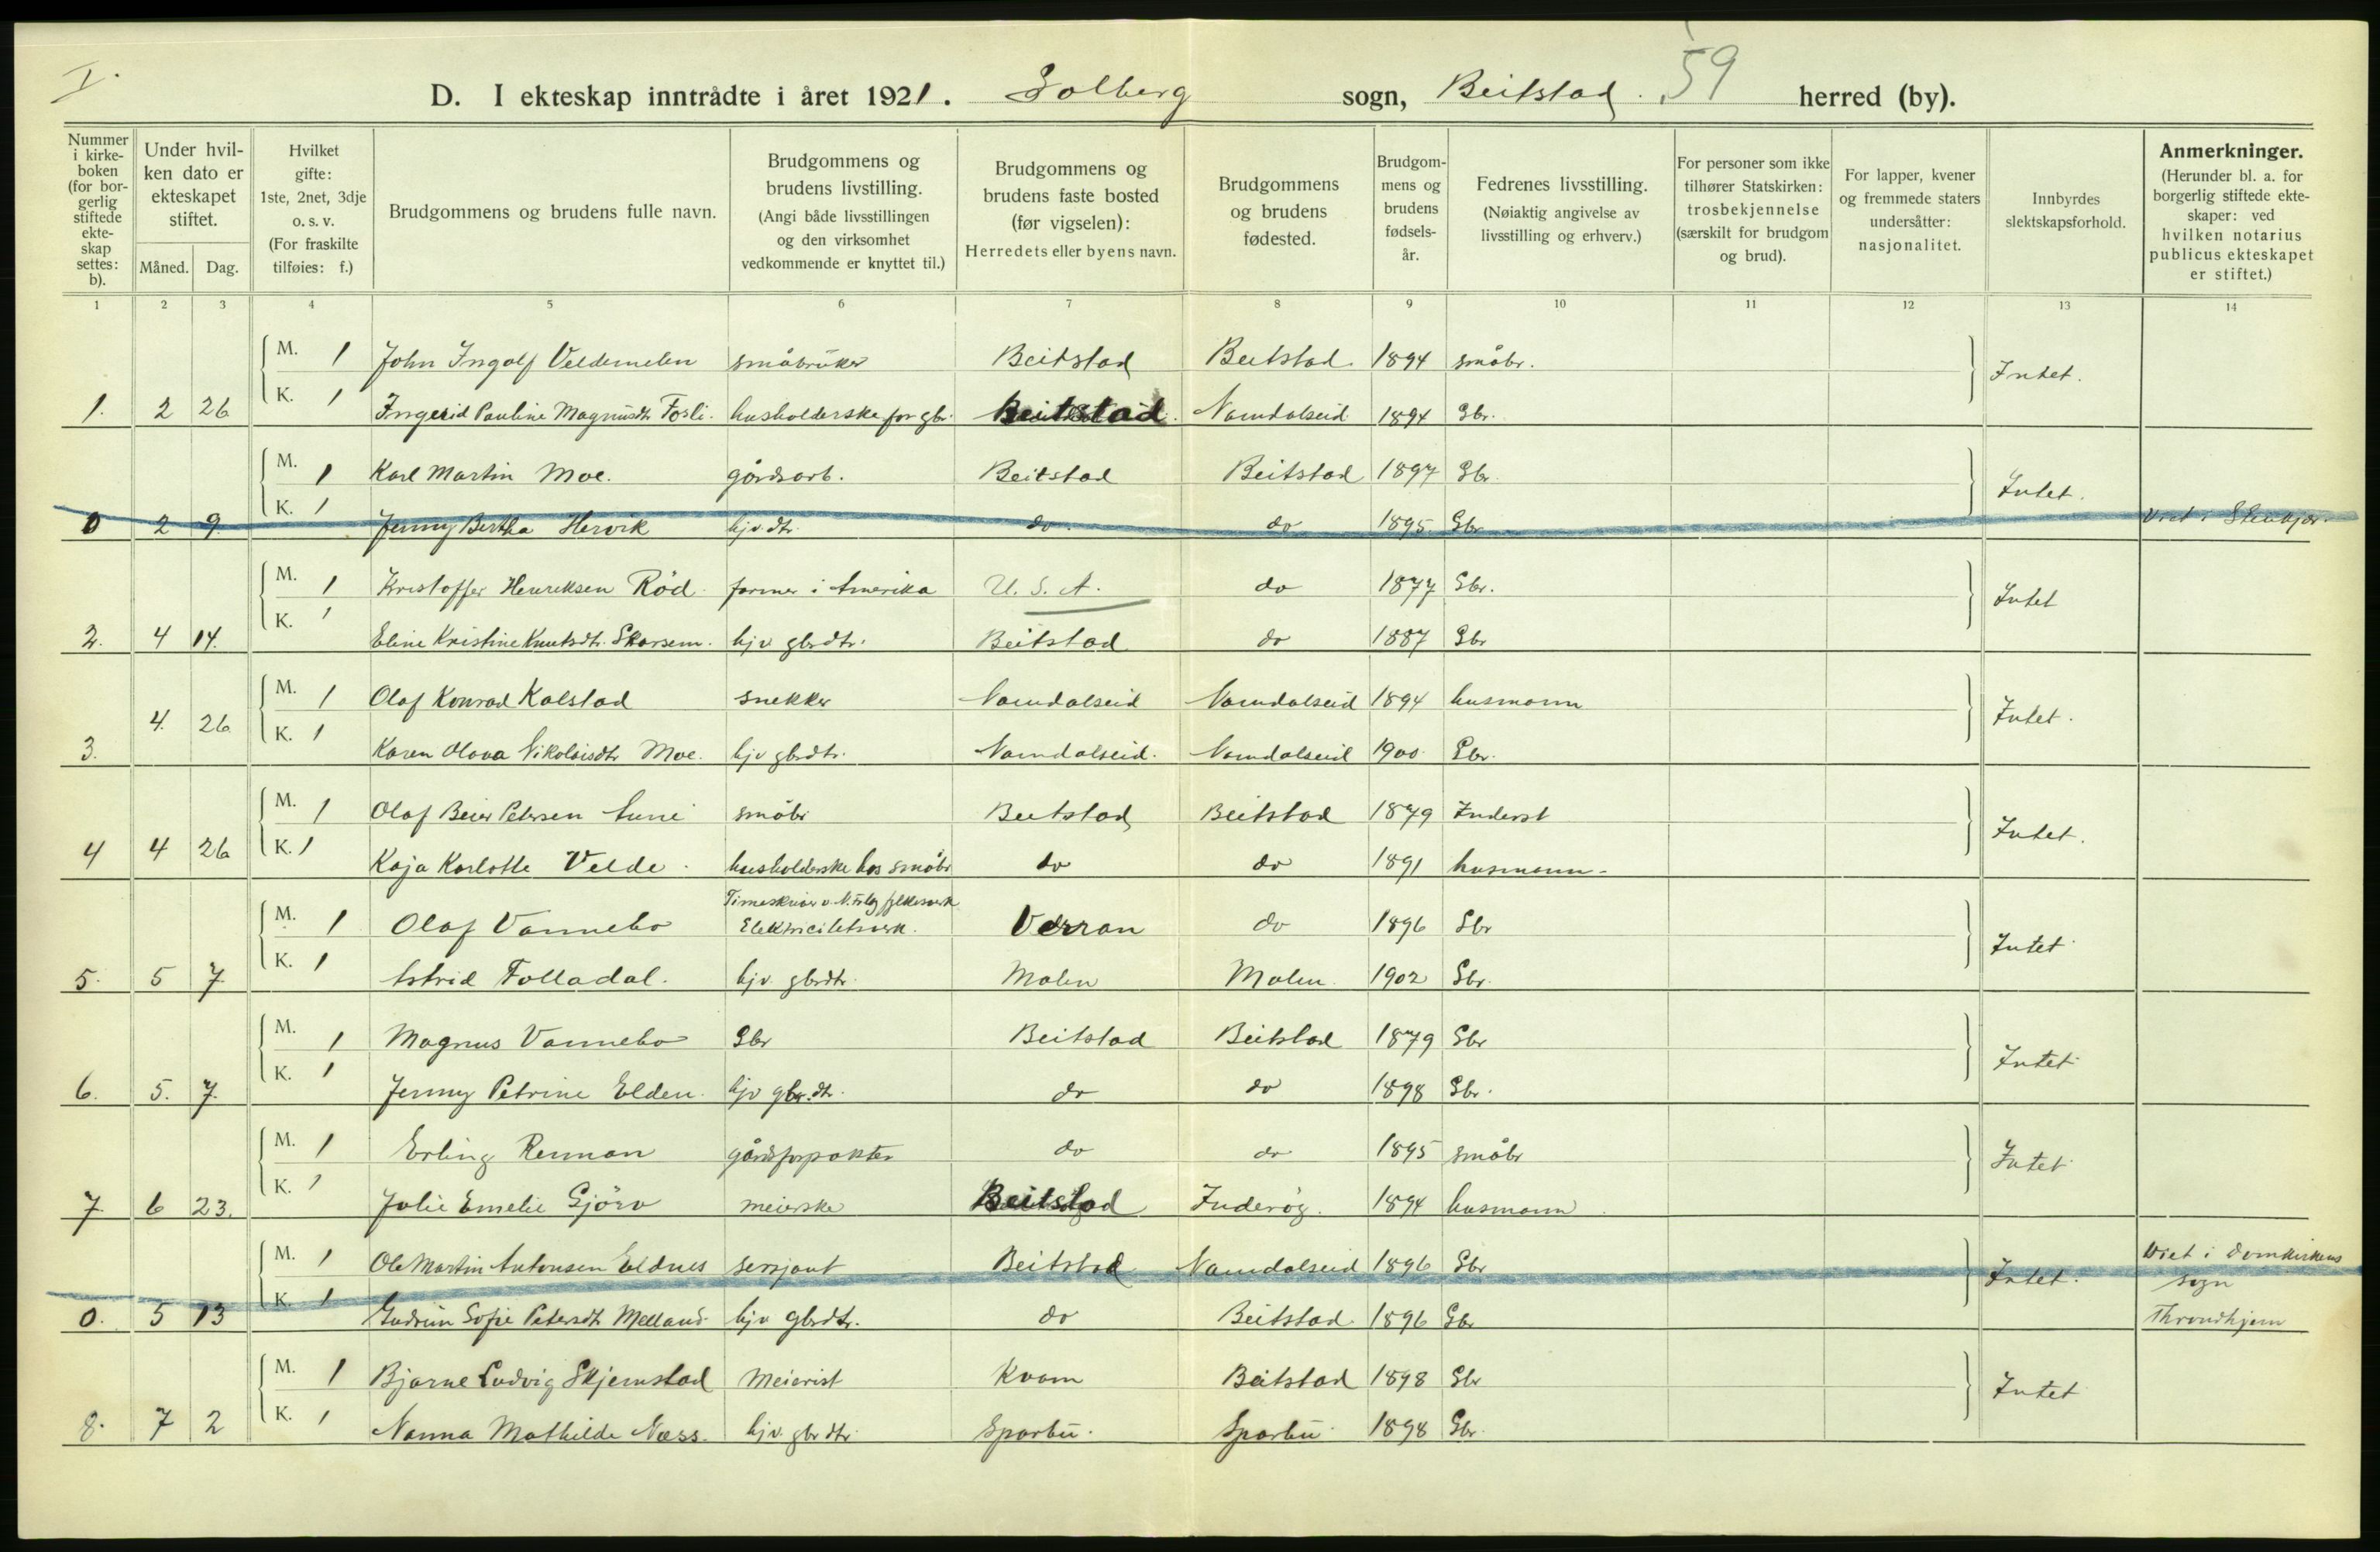 I.
D. I ekteskap inntrådte i året 1921. Solberg sogn, Beitstad. 59 herred (by).
Nummer i kirke-boken (for bor-gerlig stiftede ekte-skap settes: b).
Under hvil-ken dato er ekteskapet stiftet.
Måned. Dag.
Hvilket gifte: 1ste, 2net, 3dje o. s. v. (For fraskilte tilføies: f.)
Brudgommens og brudens fulle navn.
Brudgommens og brudens livstilling. (Angi både livsstillingen og den virksomhet vedkommende er knyttet til.)
Brudgommens og brudens faste bosted (før vigselen): Herredets eller byens navn.
Brudgommens og brudens fødested.
Brudgom-mens og brudens fødsels-år.
Fedrenes livsstilling. (Nøiaktig angivelse av livsstilling og erhverv.)
For personer som ikke tilhører Statskirken: trosbekjennelse (særskilt for brudgom og brud).
For lapper, kvener og fremmede staters undersåtter: nasjonalitet.
Innbyrdes slektskapsforhold.
Anmerkninger. (Herunder bl. a. for borgerlig stiftede ekte-skaper: ved hvilken notarius publicus ekteskapet er stiftet.)
1 2 3 4 5 6 7 8 9 10 11 12 13 14
M. 1 John Ingolf Veldemelen småbruker Beitstad Beitstad 1894 småbr. Intet.
1. 2 26 K. 1 Ingerid Pauline Magnusdtr Fosli. husholderske for gbr. Beitstad. Namdalseid 1894 Gbr.
M. 1 Karl Martin Moe. gårdsarb. Beitstad Beitstad 1897 Gbr. Intet.
0 2 9. K. 1 Jenny Bertha Hervik hjv dtr. do. do 1895 Gbr Viet i Stenkjær.
M. 1 Kristoffer Henriksen Röd. farmer i Amerika U. S. A. do 1877 Gbr. Intet
2. 4 14. K. 1 Eline Kristine Knutsdtr. Skarsem. hjv gbrdtr. Beitstad do 1887 Gbr
M. 1 Olaf Konrad Kalstad snekker Namdalseid Namdalseid 1894 husmann Intet.
3. 4. 26 K. 1 Karen Olava Nikolaisdtr Moe. hjv gbrdtr. Namdalseid. Namdalseid 1900 Gbr.
M. 1 Olaf Beier Petersen småbr Beitstad Beitstad 1879 Inderst Intet.
4 4 26 K. 1 Kaja Karlotte Velde. husholderske hos småbr do do 1891 husmann.
M. 1 Olaf Vannebo Timeskriver v. N. Tr.lag fylkesverk Elektricitetsverk. Verran do 1896 Gbr Intet
5. 5 7 K. 1 Astrid Folladal. hjv. gbrdtr. Malm Malm 1902 Gbr.
M. 1 Magnus Vannebo Gbr Beitstad Beitstad 1879 Gbr Intet
6. 5. 7. K. 1 Jenny Petrine Elden. hjv gbr.dtr. do do 1898 Gbr.
M. 1 Erling Rennan gårdsforpakter do do 1895 småbr Intet
7. 6 23. K. 1 Julie Emelie Gjörv meierske Beitstad Inderöy. 1894 husmann
M. 1 Ole Martin Antonsen Eldnes sersjant Beitstad Namdalseid 1896 Gbr Intet. Viet i Domkirkens sogn
0. 5 13 K. 1 Gudrun Sofie Petersdtr Melland hjv gbrdtr. do Beitstad 1896 Gbr Throndhjem
M. 1 Bjarne Ludvig Skjemstad Meierist Kvam Beitstad 1898 Gbr Intet
8. 7 2 K. 1 Nanna Mathilde Næss. hjv. gbrdtr. Sparbu. Sparbu 1898 Gbr.